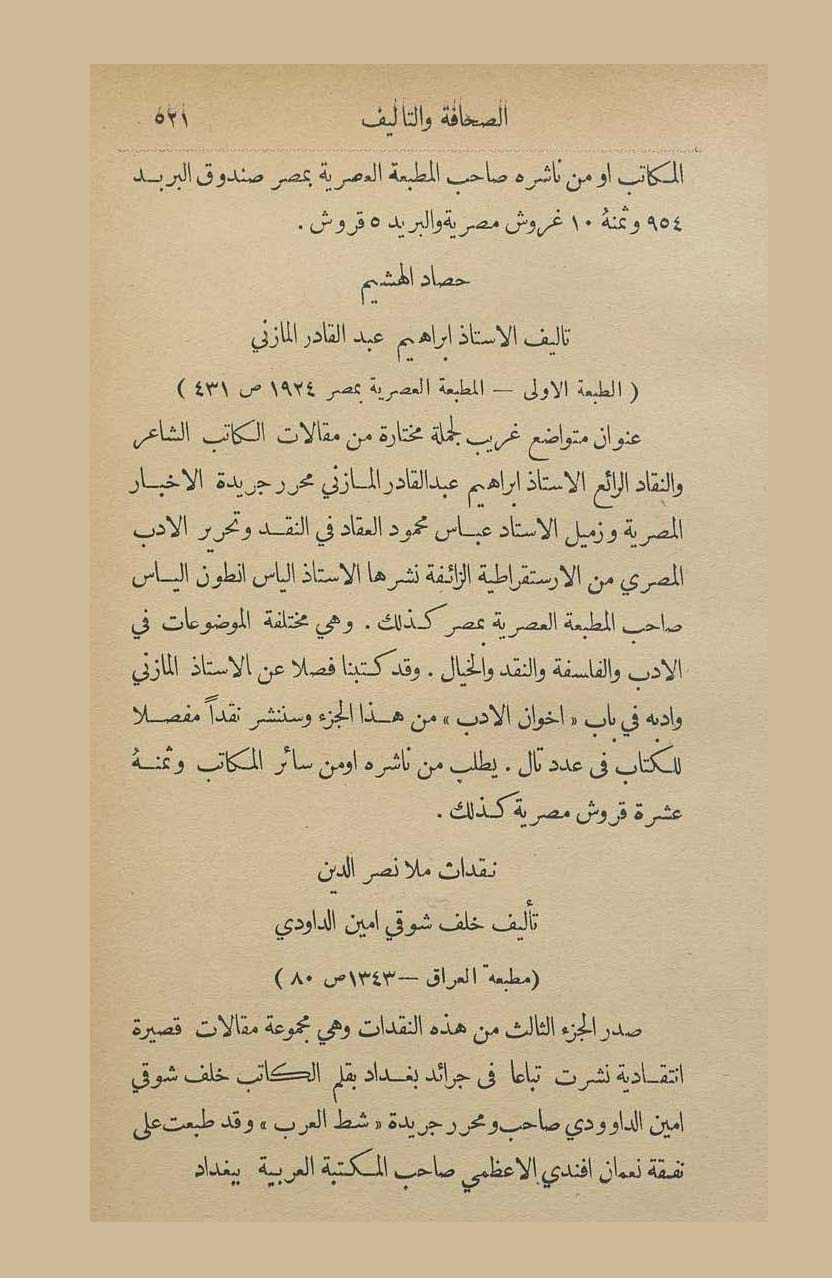 الصحافة والتأليف ٥٢١
المكاتب او من ناشره صاحب المطبعة العصرية بمصر صندوق البريد
٩٥٤ وثمنهُ ١٠ غروش مصرية والبريد ٥ قروش .
حصاد الهشيم
تاليف الاستاذ ابراهيم عبد القادر المازني
( الطبعة الاولى — المطبعة العصرية بمصر ١٩٢٤ ص ٤٣١ )
عنوان متواضع غريب لجملة مختارة من مقالات الكاتب الشاعر
والنقاد الرائع الاستاذ ابراهيم عبدالقادر المازني محرر جريدة الاخبار
المصرية وزميل الاستاد عباس محمود العقاد في النقد وتحرير الادب
المصري من الارستقراطية الزائفة نشرها الاستاذ الياس انطون الياس
صاحب المطبعة العصرية بمصر كذلك . وهي مختلفة الموضوعات في
الادب والفلسفة والنقد والخيال . وقد كتبنا فصلا عن الاستاذ المازني
وادبه في باب « اخوان الادب » من هذا الجزء وسننشر نقداً مفصلا
للكتاب فى عدد تال . يطلب من ناشره اومن سائر المكاتب وثمنهُ
عشرة قروش مصرية كذلك .
نقدات ملا نصر الدين
تأليف خلف شوقي امين الداودي
(مطبعة العراق — ١٣٤٣ ص ٨٠ )
صدر الجزء الثالث من هذه النقدات وهي مجموعة مقالات قصيرة
انتقادية نشرت تباعا فى جرائد بغداد بقلم الكاتب خلف شوقي
امين الداوودي صاحب ومحرر جريدة « شط العرب » وقد طبعت على
نفقة نعمان افندي الاعظمي صاحب المكتبة العربية ببغداد